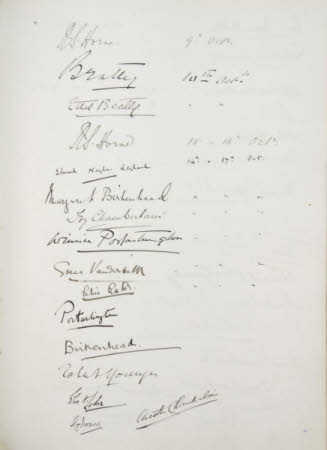 R.S. Horne. 9th Octr.
Beatty Octr.
Ethel Beatty " "
R.S. Horne 15 - 18th Octr.
14th - 17th Oct.
Margaret Birkenhead " - "
Ivy Chamberlain " - "
Winnie Portarlington " - "
Grace Vanderbilt
Portarlington
Birkenhead.
Robert Younger
Austen Chamberlain